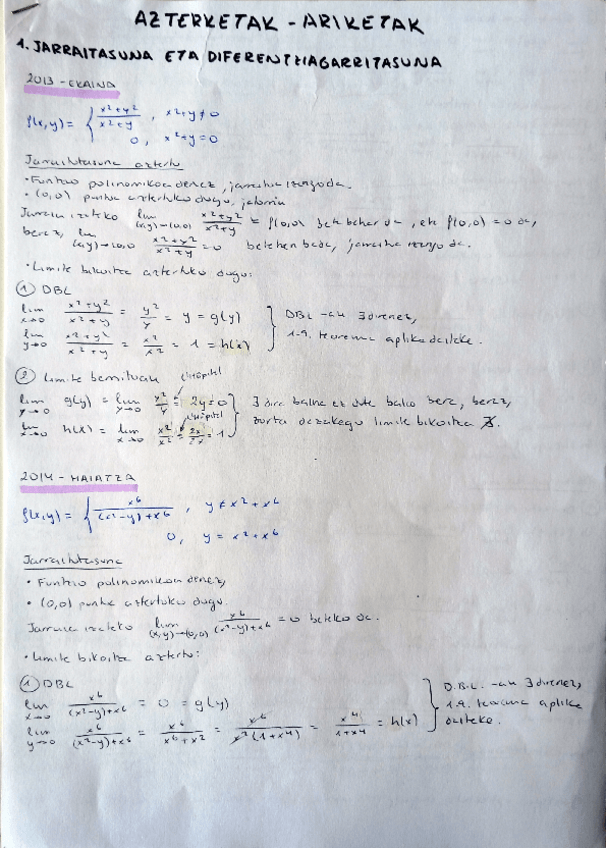 AZTERKETAK - ARIKETAK
1. JARRAITASUNA ETA DIFERENTZIAGARRITASUNA
2013 - EKAINA
f(x,y) = { x²+y² / x²+y , x²+y ≠ 0
0 , x²+y = 0
Jarraitutasuna aztertu
• Funtzio polinomikoa denez, jarraitua izango da.
• (0,0) puntua aztertuko dugu,
Jarraia izateko lim (x,y)→(0,0) x²+y² / x²+y = f(0,0) bete behar da, eta f(0,0) = 0 da,
beraz, lim (x,y)→(0,0) x²+y² / x²+y = 0 betetzen bada, jarraitua izango da.
• Limite bikoitza aztertuko dugu:
① DBL
lim x→0 x²+y² / x²+y = y²/y = y = g(y) } DBL -ak ∃ direnez,
lim y→0 x²+y² / x²+y = x²/x² = 1 = h(x) 1.go. teorema aplika daiteke.
② Limite berrituak L'Hôpital
lim y→0 g(y) = lim y→0 y = 2y = 0 } ∃ dira baina ez dute balio bera, beraz,
L'Hôpital
lim x→0 h(x) = lim x→0 x²/x² = 2x/2x = 1 } dezakegu limite bikoitza ∄.
2014 - MAIATZA
f(x,y) = { x⁶ / (x²-y)+x⁶ , y ≠ x²+x⁶
0, y = x²+x⁶
Jarraitutasuna
• Funtzio polinomikoa denez,
• (0,0) puntua aztertuko dugu.
Jarraia izateko lim (x,y)→(0,0) x⁶ / (x²-y)+x⁶ = 0 beteko da.
• Limite bikoitza aztertu:
① DBL
lim x→0 x⁶ / (x²-y)+x⁶ = 0 = g(y) } D.B.L. -ak ∃ direnez,
lim y→0 x⁶ / (x²-y)+x⁶ = x⁶ / x⁶+x² = x⁶ / x²(1+x⁴) = x⁴ / 1+x⁴ = h(x) 1.go. teorema aplika
daiteke.